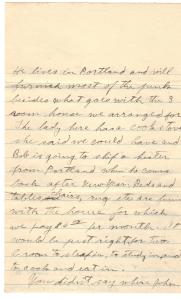 He lives in Portland and will
furnish most of the funk
besides what goes with the 3
room house we arranged for
The lady here has a cook stove
she said we could have and
Bob is going to ship a heater
from Portland when he comes
back after New Year. Beds and
tables, chairs, rug etc are furn
with the house for which
we pay per month. It
would be just right for two
1 room to sleep in, to study in and
to cook and eat in.
You didn't say where John